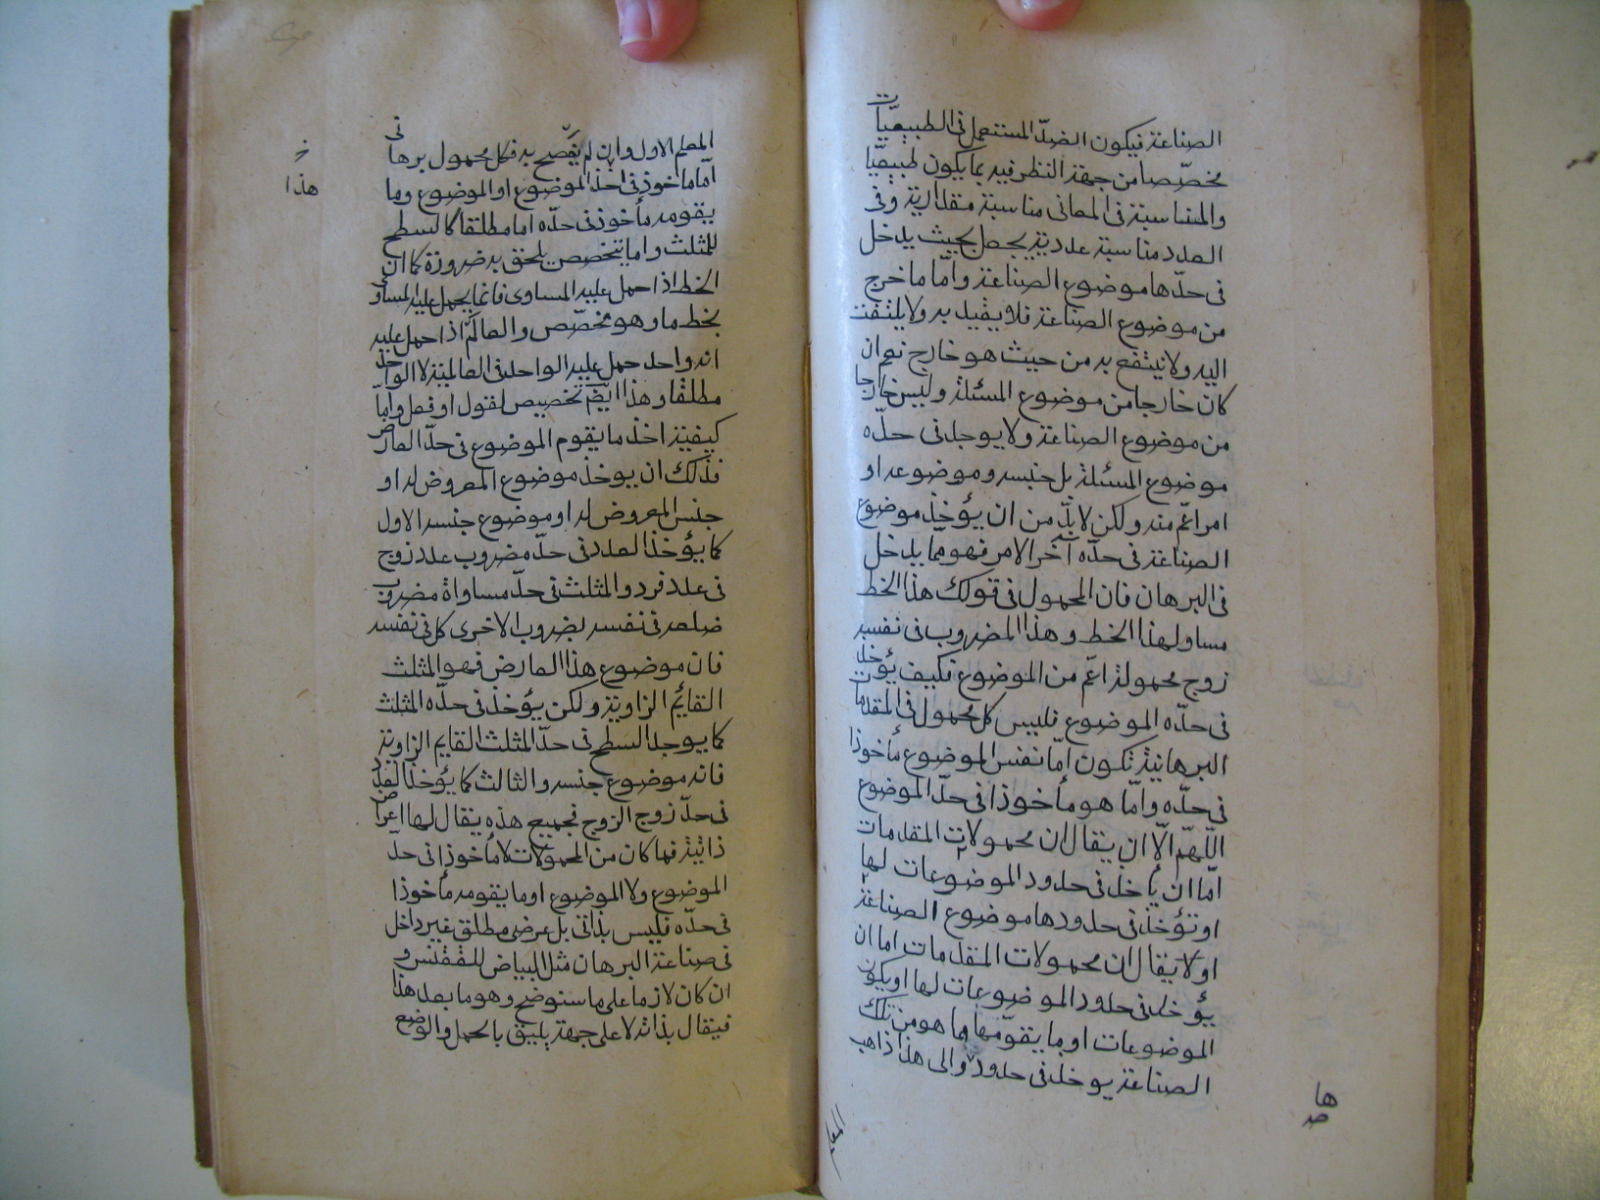 الصناعة فيكون الضدّ المستعمل فى الطبيعيّات
مخصّصا من جهة النظر فيه بما يكون طبيعيّا
والمناسبة فى المعانى مناسبة مقدارية وفى
العدد مناسبة عددية يجعل بحيث يدخل
فى حدّها موضوع الصناعة وامّا ما خرج
من موضوع الصناعة فلا يفيد به ولا يلتفت
اليه ولا ينتفع به من حيث هو خارج نعم ان
كان خارجا من موضوع المسئلة وليس خارجا
من موضوع الصناعة ولا يوجد فى حدّه
موضوع المسئلة بل جنسه وموضوعه او
امر اعّم منه ولكن لابدّ من ان يؤخذ موضوع
الصناعة فى حدّه آخر الامر فهو ممّا يدخل
فى البرهان فان المحمول فى قولك هذا الخط
مساو لهذا الخط وهذا المضروب فى نفسه
زوج محموله اعّم من الموضوع فكيف يؤخذ
فى حدّه الموضوع فليس كل محمول فى المقدمات
البرهانية تكون امّا نفس الموضوع مأخوذا
فى حدّه وامّا هو مأخوذا فى حدّ الموضوع
اللّهمّ الّا ان يقال ان محمولات المقدمات
امّا ان يأخذ فى حدود الموضوعات لها
او تؤخذ فى حدودها موضوع الصناعة
او لا يقال ان محمولات المقدمات اما ان
يؤخذ فى حدود الموضوعات لها او يكون
الموضوعات او ما يقوّمها مما هو من تلك
الصناعة يوخذ فى حدود والى هذا ذاهب
ها
صح
المعلم
المعلم الاول وان لم يفصّح به فكل محمول برهانى
امّا ماخوذ فى احد الموضوع او الموضوع وما
يقومه مأخوذ فى حدّه اما مطلقا كالسطح
للمثلث واما بتخصص يلحق به ضرورة كما ان
الخط اذا حمل عليه المساوى فانما يحمل عليه المساوى
بخط ما وهو مخصّص والعالم اذا حمل عليه
انه واحد حمل عليه الواحد فى العالمية لا الواحد
مطلقا وهذا ايضم تخصيص لقول او فعل وامّا
كيفية اخذ ما يقوم الموضوع فى حدّ العارض
فذلك ان يوخذ موضوع المعروض له او
جنس المعروض له او موضوع جنسه الاول
كما يؤخذ العدد فى حدّ مضروب عدد زوج
فى عدد فرد والمثلث فى حدّ مساواة مضروب
ضلعه فى نفسه لضروب الاخرى كل فى نفسه
فان موضوع هذا العارض فهو المثلث
القائم الزاوية ولكن يؤخذ فى حدّه المثلث
كما يوجد السطح فى حدّ المثلث القايم الزاوية
فانه موضوع جنسه والثالث كما يؤخذ العدد
فى حدّ زوج الزوج فجميع هذه يقال لها اعراض
ذاتية فما كان من المحمولات لا مأخوذا فى حد
الموضوع ولا الموضوع او ما يقومه مأخوذا
فى حدّه فليس بذاتى بل عرضى مطلق غير داخل
فى صناعة البرهان مثل البياض للققنس و
ان كان لازما على ما سنوضح وهو ما بعد هذا
فيقال بذاته لا على جهة يليق بالحمل والوضع
خ
هذا